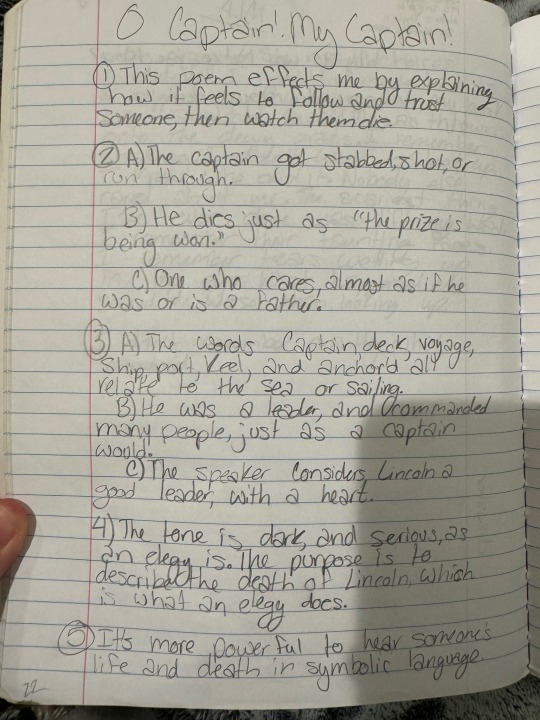 O Captain! My Captain!
① This poem effects me by explaining
how it feels to follow and trust
someone, then watch them die.
② A) The captain got stabbed, shot, or
run through.
B) He dies just as "the prize is
being won."
C) One who cares, almost as if he
was or is a father.
③ A) The words Captain, deck, voyage,
ship, port, keel, and anchor'd all
relate to the sea or sailing.
B) He was a leader, and commanded
many people, just as a captain
would.
C) The speaker considers Lincoln a
good leader, with a heart.
4) The tone is dark, and serious, as
an elegy is. The purpose is to
describe the death of Lincoln, which
is what an elegy does.
⑤ It's more powerful to hear someone's
life and death in symbolic language.
22